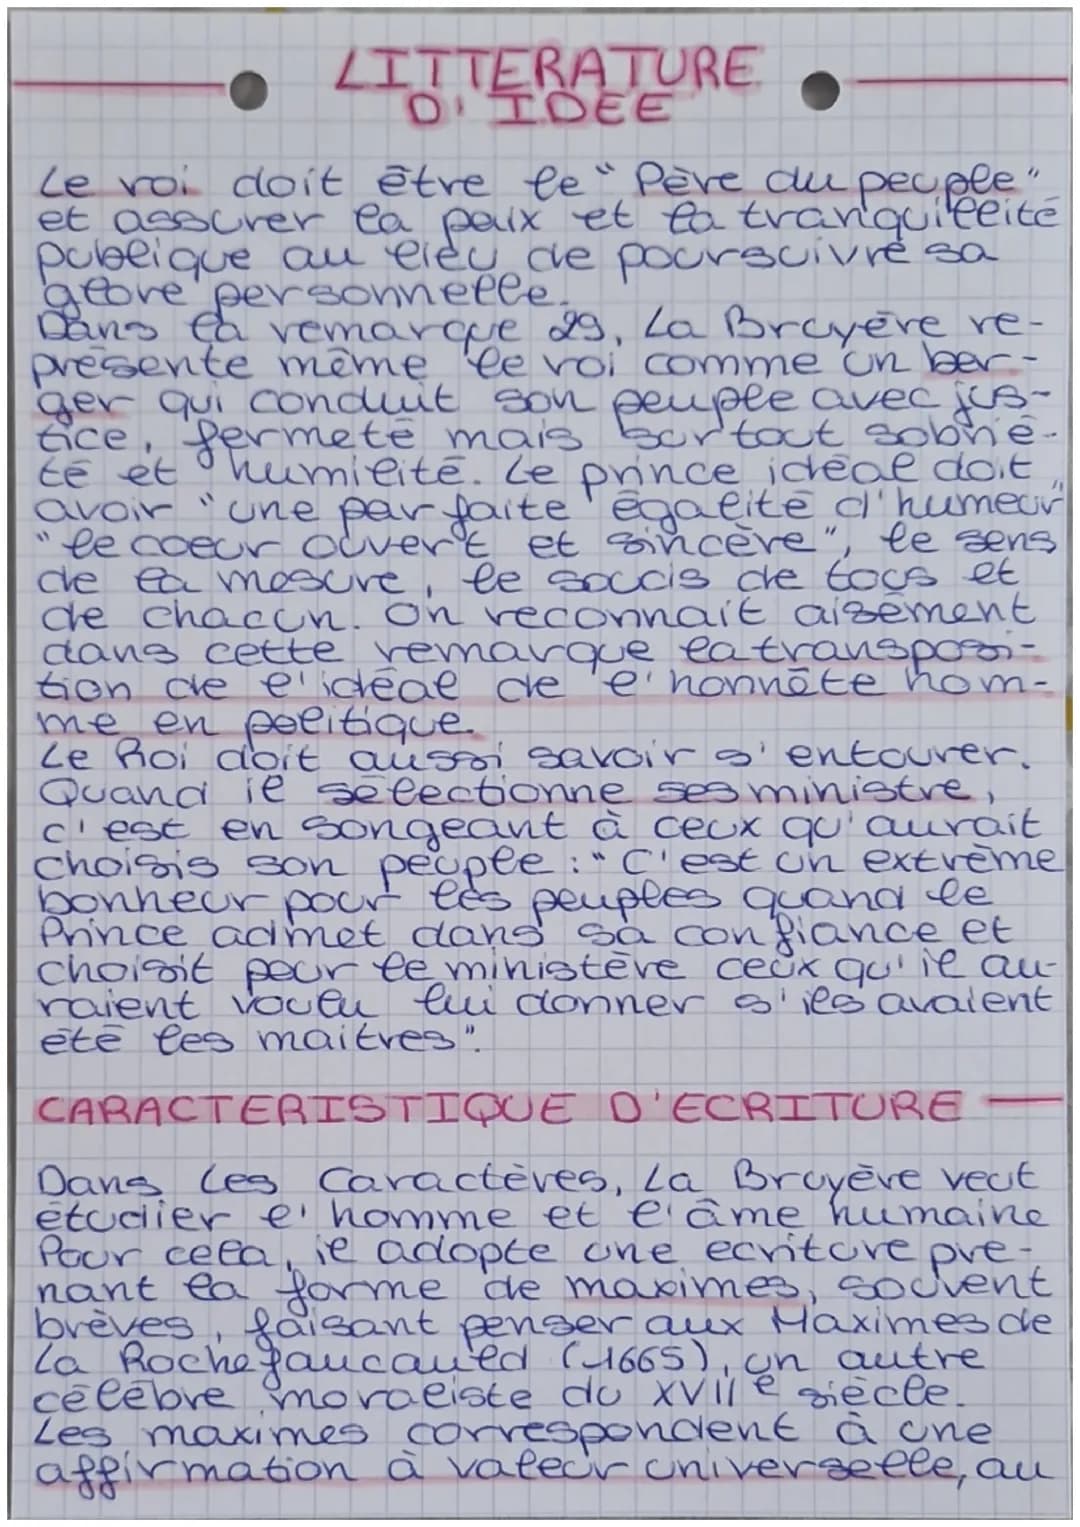 LITTERATURE
D'IDEE
Le roi doit être le "Père du peuple"
et assurer la paix et la tranquilleité
publique au lieu de poursuivre sa
glore personnelle.
Dans la remarque 29, La Bruyère re-
présente même le roi comme un ber-
ger qui conduit son peuple avec jus-
tice, fermeté mais surtout sobrié-
té et humilité. Le prince idéal doit
avoir "une parfaite égalité d'humeur"
"le coeur ouvert et sincère", le sens
de la mesure, le soucis de tous et
de chacun. On reconnait aisément
dans cette remarque la transposi-
tion de l'idéal de l'honnête hom-
me en politique.
Le Roi doit aussi savoir s'entourer.
Quand il sélectionne ses ministre,
c'est en songeant à ceux qu'aurait
choisis son peuple : "C'est un extrême
bonheur pour les peuples quand le
Prince admet dans sa confiance et
choisit pour le ministère ceux qu'il au-
raient voulu lui donner s'ils avaient
été les maitres".
CARACTERISTIQUE D'ECRITURE
Dans Les Caractères, La Bruyère veut
étudier l'homme et l'âme humaine
Pour cela, il adopte une ecriture pre-
nant la forme de maximes, souvent
brèves, faisant penser aux Maximes de
La Rochefaucauld (1665), un autre
célèbre moraliste du XVIIe siècle.
Les maximes correspondent à une
affirmation à valeur universelle, au